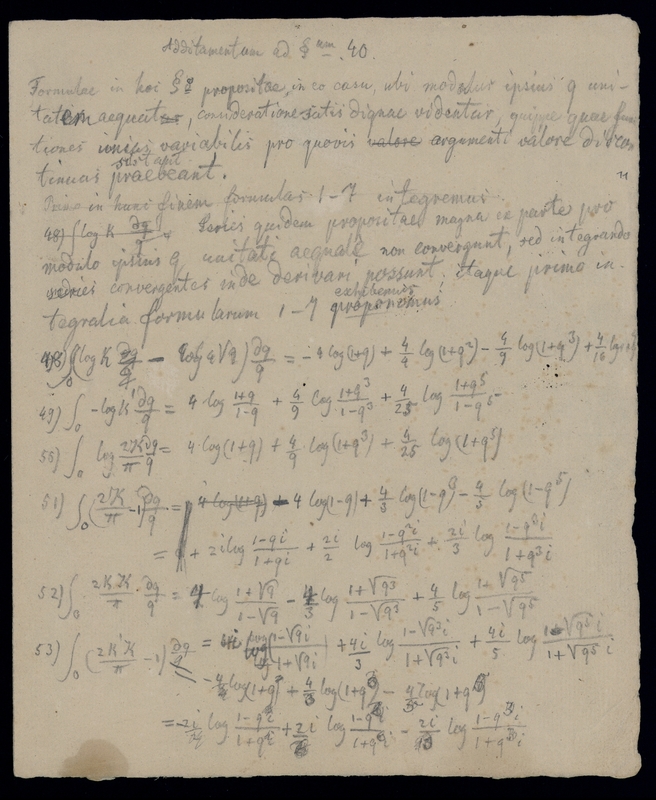 Additamentum ad § um. 40.
Formulae in hoc § propositae, in eo casu, ubi modulus ipsius q uni-
tatem aequat, consideratione satis dignae videntur, quippe quae func
tiones unius variabilis pro quovis valore argumenti valore discon
suscipit
tinuas praebeant.
in hunc finem formulas 1-7 integremus
48) ∫ log k ∂q/q Series quidem propositae magna ex parte pro
modulo ipsius q unitati aequale non convergunt, sed integrando
series convergentes inde derivari possunt. itaque primo in-
exhibemus
tegralia formularum 1-7 proponimus
48) ∫₀ (log k ∂q/q - log 4√q) ∂q/q = -4 log(1+q) + 4/4 log(1+q²) - 4/9 log(1+q³) + 4/16 log(1+q⁴)
49) ∫₀ -log k' ∂q/q = 4 log (1+q)/(1-q) + 4/9 log (1+q³)/(1-q³) + 4/25 log (1+q⁵)/(1-q⁵)
50) ∫₀ log 2K/π ∂q/q = 4 log(1+q) + 4/9 log(1+q³) + 4/25 log(1+q⁵)
51) ∫₀ (2K/π - 1) ∂q/q = 4 log(1+q) - 4 log(1-q) + 4/3 log(1-q³) - 4/5 log(1-q⁵)
= + 2i log (1-qi)/(1+qi) + 2i/2 log (1-q²i)/(1+q²i) + 2i/3 log (1-q³i)/(1+q³i)
52) ∫₀ 2kK/π · ∂q/q = 4 log (1+√q)/(1-√q) - 4/3 log (1+√q³)/(1-√q³) + 4/5 log (1+√q⁵)/(1-√q⁵)
53) ∫₀ (2k'K/π - 1) ∂q/q = 4i log (1-√q i)/(1+√q i) + 4i/3 log (1-√q³ i)/(1+√q³ i) + 4i/5 log (1-√q⁵ i)/(1+√q⁵ i)
- 4 log(1+q) + 4/3 log(1+q³) - 4/5 log(1+q⁵)
= -2i log (1-q i)/(1+q i) + 2i/2 log (1-q²i)/(1+q²i) - 2i/3 log (1-q³i)/(1+q³i)